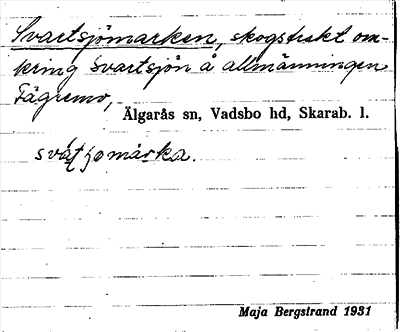 Svartsjömarken, skogstrakt om-
kring Svartsjön å allmänningen
Fägremo,
Älgarås sn, Vadsbo hd, Skarab. l.
svat̨ ʃomarka.
Maja Bergstrand 1931